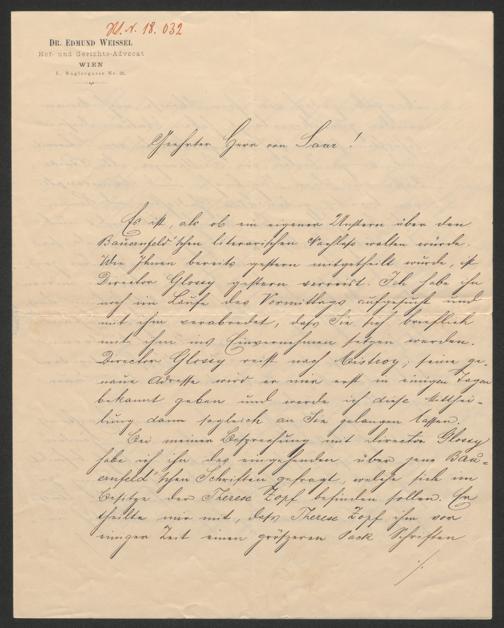 H. N. 18.032
DR. EDMUND WEISSEL
Hof- und Gerichts-Advocat
WIEN
I., Naglergasse Nr.
Geehrter Herr von Saar!
Es ist, als ob ein eigener Unstern über den
Bauernfeld'schen literarischen Nachlaß walten würde.
Wie Ihnen bereits gestern mitgetheilt wurde, ist
Director Glossy gestern verreist. Ich habe ihn
noch im Laufe des Vormittags aufgesucht und
mit ihm verabredet, daß Sie sich brieflich
mit ihm ins Einvernehmen setzen werden.
Director Glossy reist nach ; seine ge-
naue Adresse wird er mir erst in einigen Tagen
bekannt geben und werde ich diese Mitthei-
lung dann sogleich an Sie gelangen lassen.
Bei meiner Besprechung mit Director Glossy
habe ich ihn des eingehenden über jene Bau-
ernfeld'schen Schriften gefragt, welche sich im
Besitze der Therese Zopf befinden sollen. Er
theilte mir mit, daß Therese Zopf ihm vor
einiger Zeit einen größeren Pack Schriften
./.